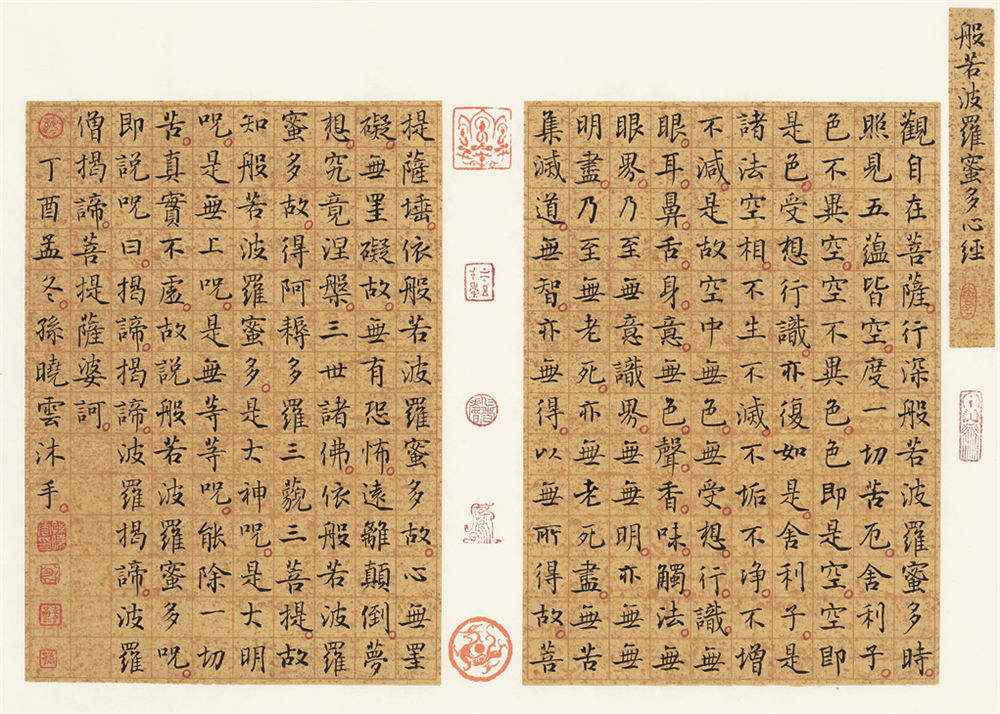 般若波羅蜜多心經
觀自在菩薩行深般若波羅蜜多時
照見五蘊皆空度一切苦厄舍利子
色不異空空不異色色即是空空即
是色受想行識亦復如是舍利子是
諸法空相不生不滅不垢不浄不增
不減是故空中無色無受想行識無
眼耳鼻舌身意無色聲香味觸法無
眼界乃至無意識界無無明亦無無
明盡乃至無老死亦無老死盡無苦
集滅道無智亦無得以無所得故菩
提薩埵依般若波羅蜜多故心無罣
礙無罣礙故無有恐怖遠離顛倒夢
想究竟涅槃三世諸佛依般若波羅
蜜多故得阿耨多羅三藐三菩提故
知般若波羅蜜多是大神呪是大明
呪是無上呪是無等等呪能除一切
苦真實不虛故説般若波羅蜜多呪
即説呪曰揭諦揭諦波羅揭諦波羅
僧揭諦菩提薩婆訶
丁酉孟冬孫曉雲沐手